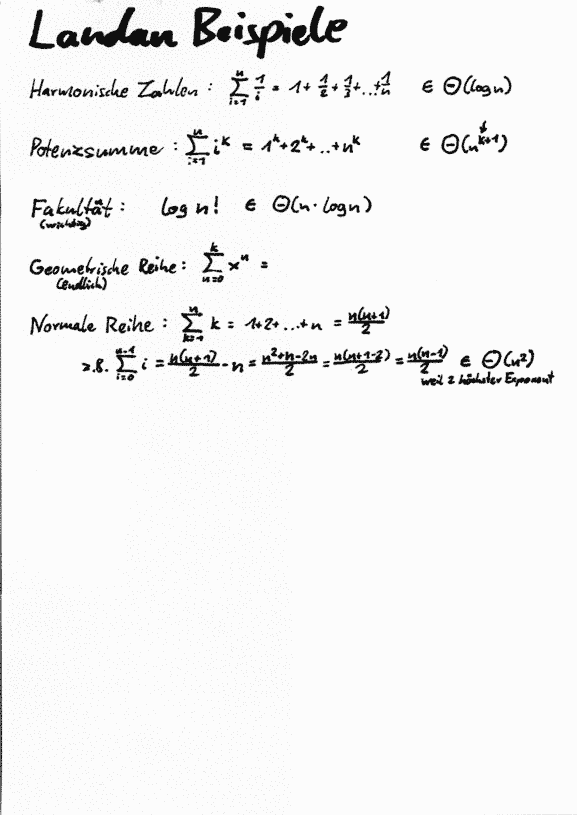 Landau Beispiele
Harmonische Zahlen : ∑_{i=1}^{n} 1/i = 1 + 1/2 + 1/3 + ... + 1/n ∈ Θ(log n)
Potenzsumme : ∑_{i=1}^{n} i^k = 1^k + 2^k + .. + n^k ∈ Θ(n^{k+1}) ↓
Fakultät : log n! ∈ Θ(n · log n)
(wichtig)
Geometrische Reihe : ∑_{n=0}^{k} x^n =
(endlich)
Normale Reihe : ∑_{k=1}^{n} k = 1+2+...+n = n(n+1)/2
z.B. ∑_{i=0}^{n-1} i = n(n+1)/2 - n = n²+n-2n/2 = n(n+1-2)/2 = n(n-1)/2 ∈ Θ(n²)
weil 2 höchster Exponent